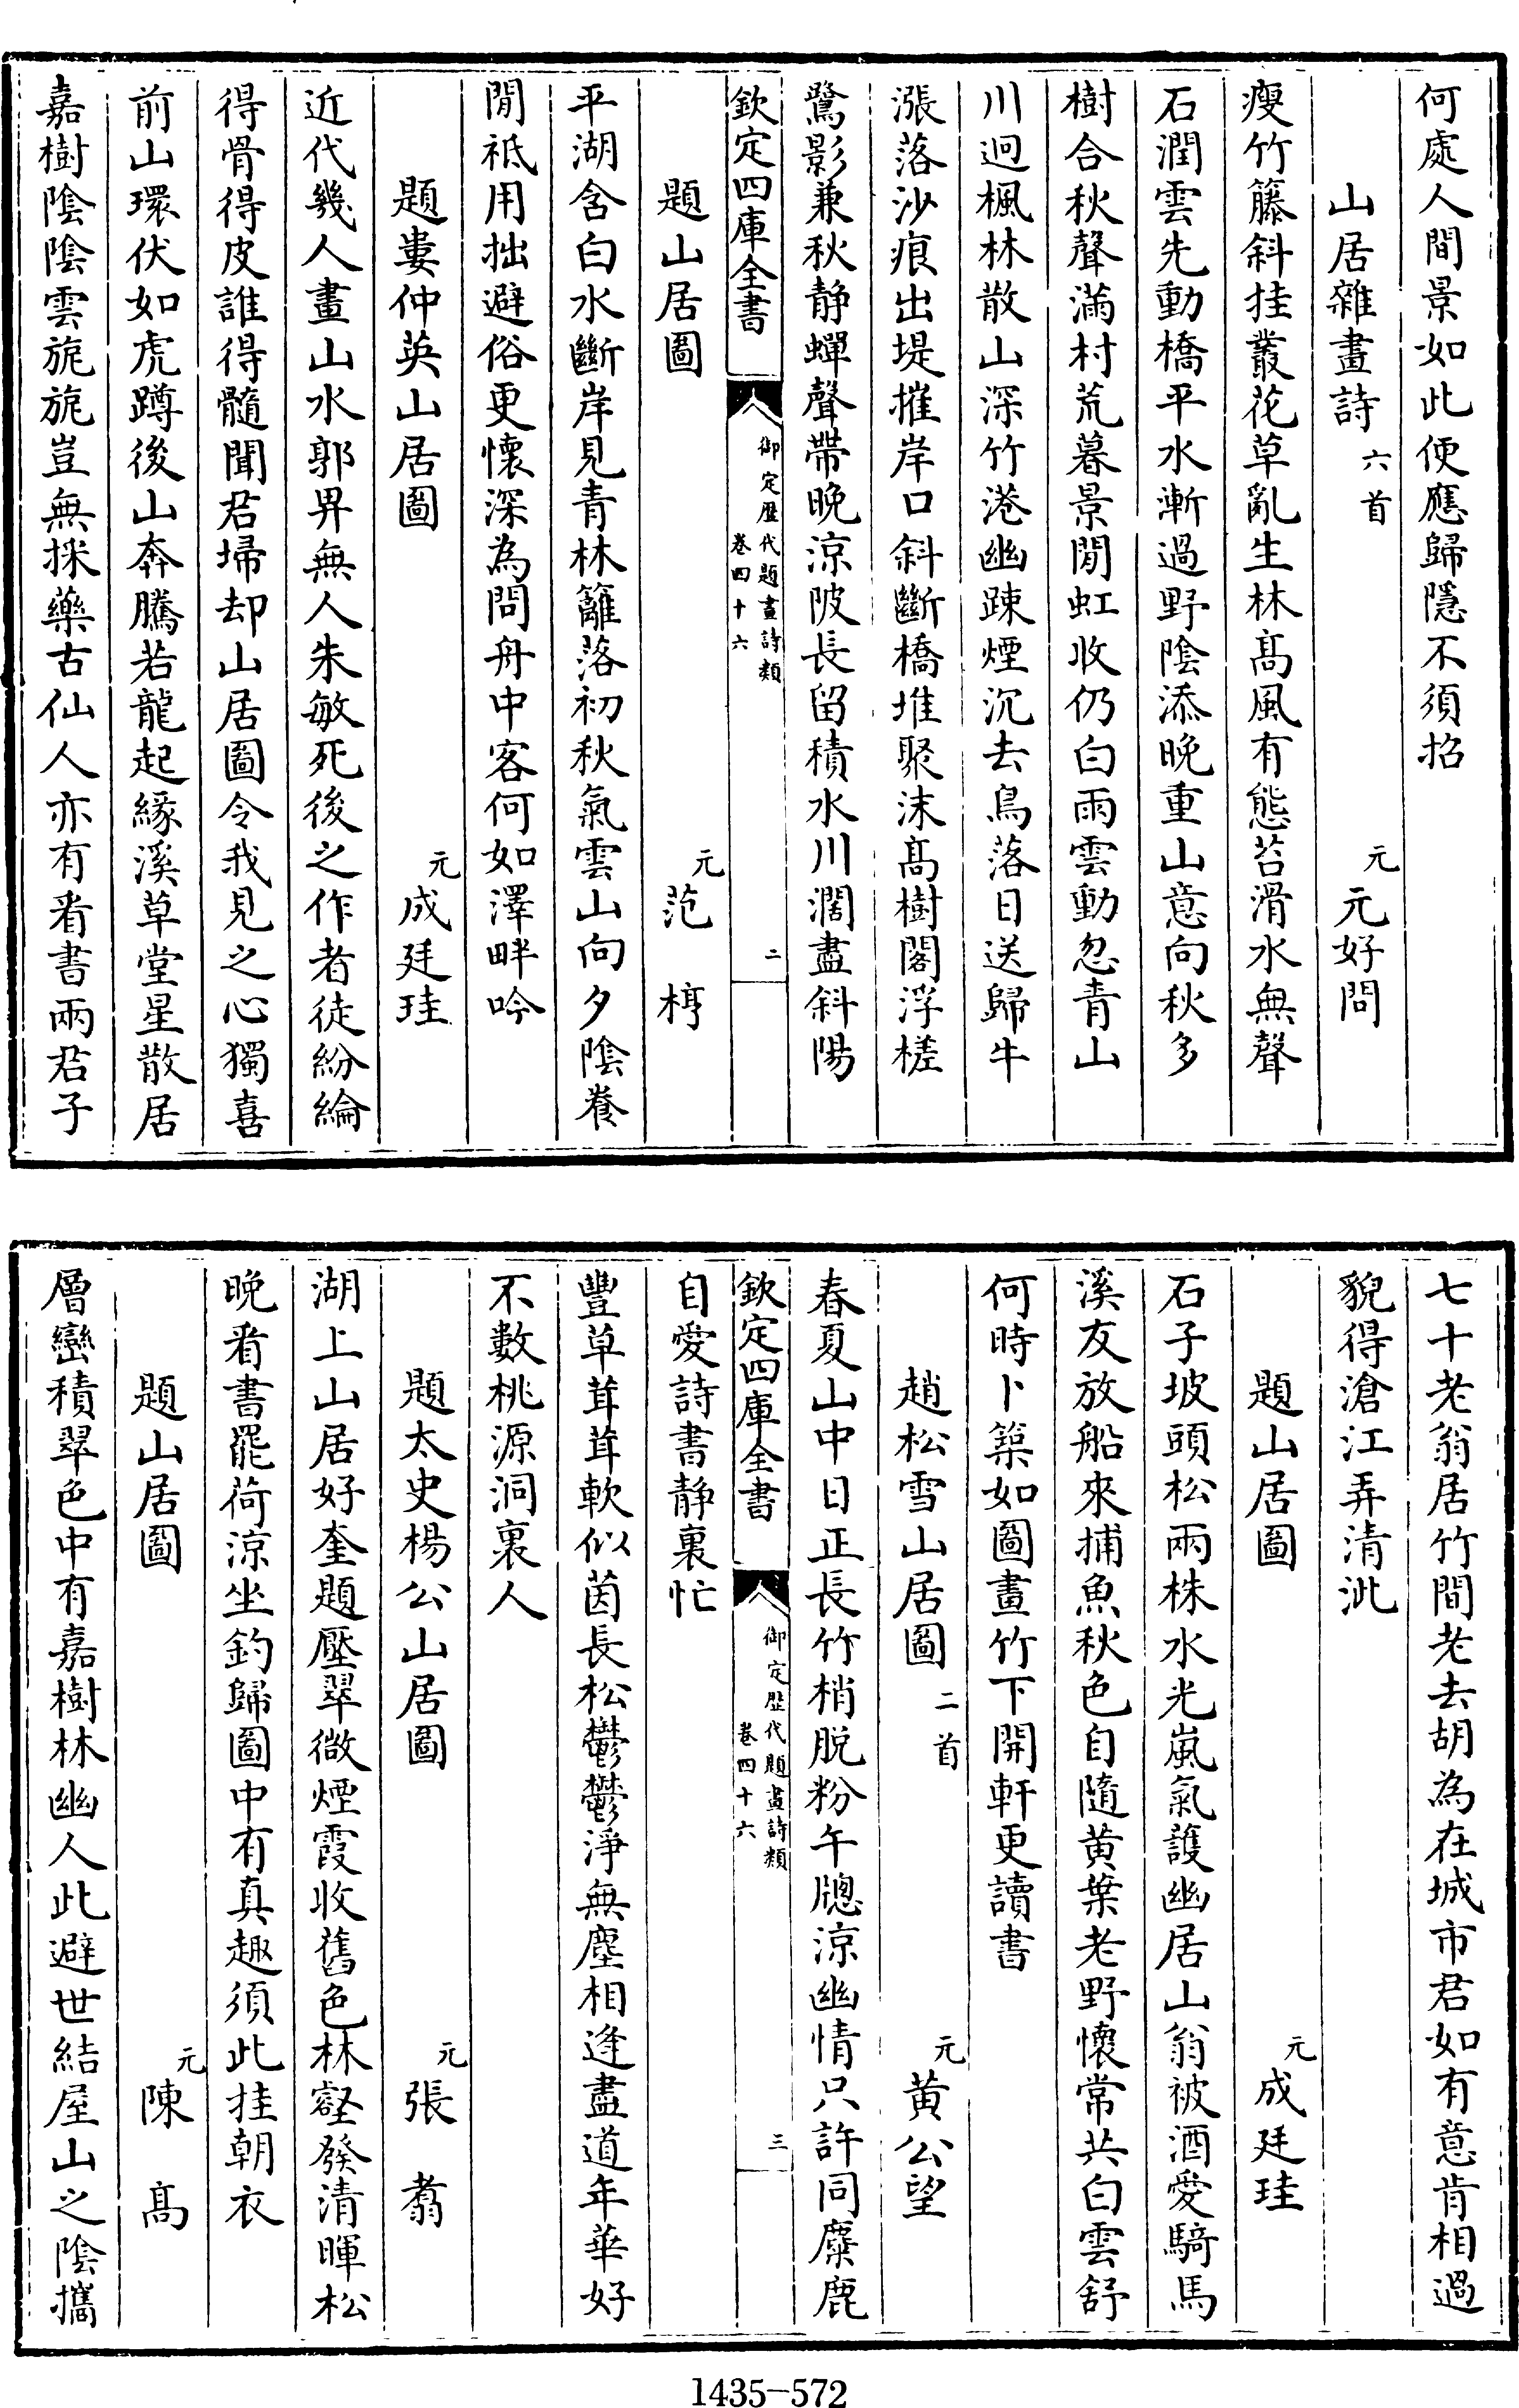 何處人間景如此便應歸隱不須招
山居雜畫詩六首 元元好問
瘦竹籐斜挂叢花草亂生林髙風有態苔滑水無聲
石潤雲先動橋平水漸過野陰添晚重山意向秋多
樹合秋聲滿村荒暮景閒虹收仍白雨雲動忽青山
川迥楓林散山深竹港幽踈煙沉去鳥落日送歸牛
漲落沙痕出堤摧岸口斜斷橋堆聚沫髙樹閣浮槎
鷺影兼秋静蟬聲帶晚涼陂長留積水川濶盡斜陽
欽定四庫全書 御定歴代題畫詩類 卷四十六 二
題山居圖 元范梈
平湖含白水斷岸見青林籬落初秋氣雲山向夕陰養
閒祗用拙避俗更懷深為問舟中客何如澤畔吟
題婁仲英山居圖 元成廷珪
近代幾人畫山水郭畀無人朱敏死後之作者徒紛綸
得骨得皮誰得髓聞君埽却山居圖令我見之心獨喜
前山環伏如虎蹲後山奔騰若龍起緣溪草堂星散居
嘉樹陰陰雲旎旎豈無採藥古仙人亦有看書兩君子
七十老翁居竹間老去胡為在城市君如有意肯相過
貌得滄江弄清泚
題山居圖 元成廷珪
石子坡頭松兩株水光嵐氣護幽居山翁被酒愛騎馬
溪友放船來捕魚秋色自隨黄葉老野懷常共白雲舒
何時卜築如圖畫竹下開軒更讀書
趙松雪山居圖二首 元黄公望
春夏山中日正長竹梢脱粉午牕涼幽情只許同麋鹿
欽定四庫全書 御定歴代題畫詩類 卷四十六 三
自愛詩書静裏忙
豐草茸茸軟似茵長松鬱鬱淨無塵相逢盡道年華好
不數桃源洞裏人
題太史楊公山居圖 元張翥
湖上山居好奎題壓翠微煙霞收舊色林壑發清暉松
晚看書罷荷涼坐釣歸圖中有真趣須此挂朝衣
題山居圖 元陳髙
層巒積翠色中有嘉樹林幽人此避世結屋山之陰攜
1435-572